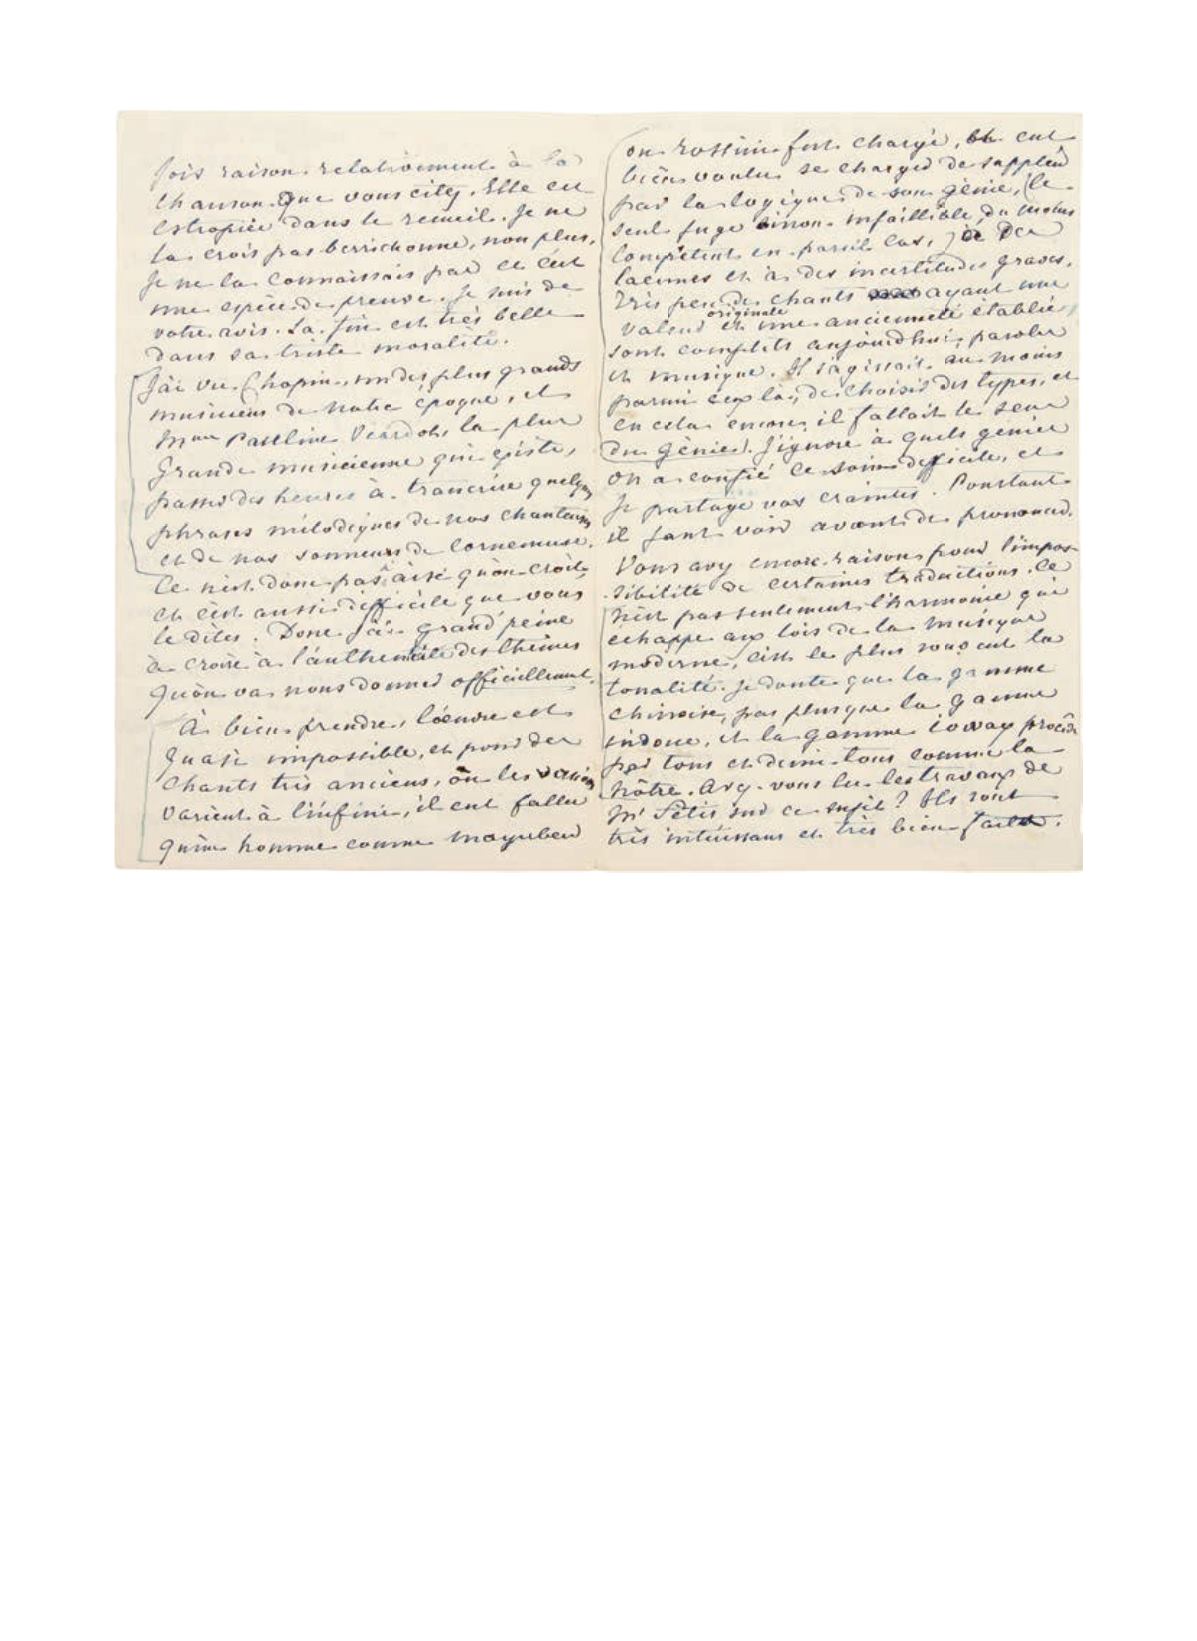 fois raison relativement à la
chanson que vous citez. Elle est
estropiée dans le recueil. Je ne
la crois pas berrichonne, non plus,
je ne la connaissais pas et c'est
une espèce de preuve. Je suis de
votre avis. La fin est très belle
dans sa triste moralité.
J'ai vu Chopin, un des plus grands
musiciens de notre époque, et
Mme Pauline Viardot, la plus
grande musicienne qui existe,
passer des heures à transcrire quelques
phrases mélodiques de nos chanteurs
et de nos sonneurs de cornemuse.
Ce n'est donc pas aisé qu'on croit,
et c'est aussi difficile que vous
le dites. Donc j'ai grand peine
à croire à l'authenticité des thèmes
qu'on va nous donner officiellement.
À bien prendre, l'oeuvre est
quasi impossible, et pour des
chants très anciens, où les versions
varient à l'infini, il eut fallu
qu'un homme comme Mayerbeer
ou Rossini fut chargé, eut
bien voulu se charger de suppléer
par la logique de son génie, (le
seul juge sinon infaillible, du moins
compétent en pareil cas,) à des
lacunes et à des incertitudes graves.
Très peu de chants ayant une
valeur originale et une ancienneté établie,
sont complets aujourd'hui, paroles
et musique. Il s'agissait au moins
parmi ceux là, de choisir des types, et
en cela encore, il fallait le sens
du génie. J'ignore à quels génies
on a confié ce soin difficile, et
je partage vos craintes. Pourtant
il faut voir avant de prononcer.
Vous avez encore raison pour l'impos-
sibilité de certaines traductions. Ce
n'est pas seulement l'harmonie qui
echappe aux lois de la musique
moderne, c'est le plus souvent la
tonalité. Je doute que la gamme
chinoise, pas plus que la gamme
indoue, et la gamme ioway procède
par tons et demi-tons comme la
nôtre. Avez-vous lu les travaux de
Mr Fétis sur ce sujet ? Ils sont
très intéressans et très bien faits.